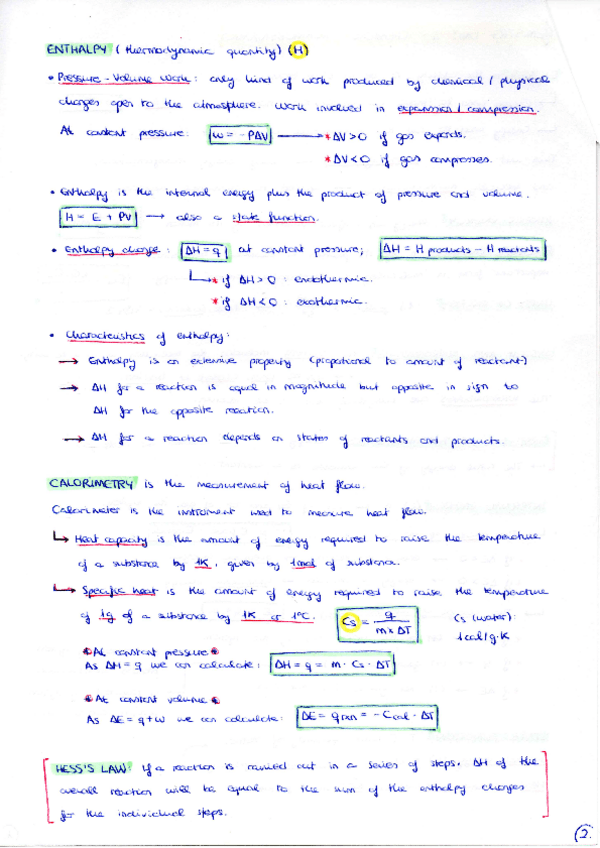 ENTHALPY (thermodynamic quantity) (H)
• Pressure-Volume work: only kind of work produced by chemical / physical
changes open to the atmosphere. Work involved in expansion / compression.
At constant pressure: w = -PΔV → * ΔV > 0 if gas expands.
* ΔV < 0 if gas compresses.
• Enthalpy is the internal energy plus the product of pressure and volume.
H = E + PV → also a state function.
• Enthalpy change: ΔH = q at constant pressure; ΔH = H products - H reactants
↳ * if ΔH > 0: endothermic.
* if ΔH < 0: exothermic.
• Characteristics of enthalpy:
→ Enthalpy is an extensive property (proportional to amount of reactant)
→ ΔH for a reaction is equal in magnitude but opposite in sign to
ΔH for the opposite reaction.
→ ΔH for a reaction depends on states of reactants and products.
CALORIMETRY is the measurement of heat flow.
Calorimeter is the instrument used to measure heat flow.
↳ Heat capacity is the amount of energy required to raise the temperature
of a substance by 1K, given by 1mol of substance.
↳ Specific heat is the amount of energy required to raise the temperature
of 1g of a substance by 1K or 1°C. Cs = q / m × ΔT Cs (water):
1 cal/g·K
* At constant pressure *
As ΔH = q we can calculate: ΔH = q = m · Cs · ΔT
* At constant volume *
As ΔE = q + w we can calculate: ΔE = q rxn = - C cal · ΔT
HESS'S LAW: If a reaction is carried out in a series of steps, ΔH of the
overall reaction will be equal to the sum of the enthalpy changes
for the individual steps.
2.